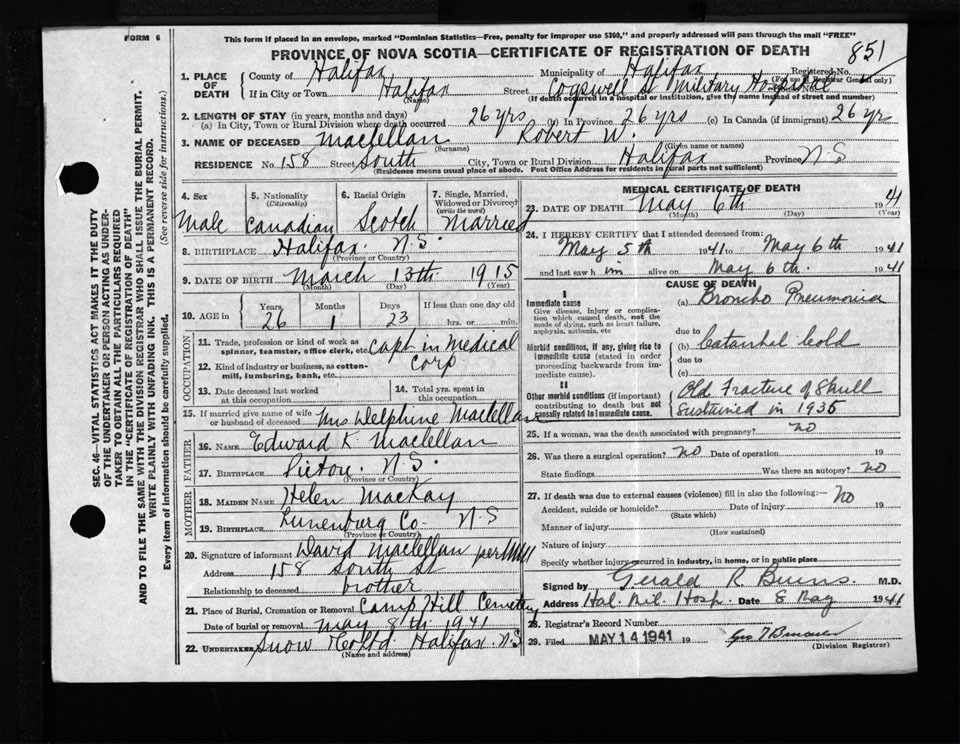 FORM 6
This form if placed in an envelope, marked "Dominion Statistics—Free, penalty for improper use $300," and properly addressed will pass through the mail "FREE"
PROVINCE OF NOVA SCOTIA—CERTIFICATE OF REGISTRATION OF DEATH
851
1. PLACE OF DEATH
County of Halifax Municipality of Halifax Registered No.
(For use of Registrar General only)
If in City or Town Halifax Street Cogswell St Military Hospital
(Name) (If death occurred in a hospital or institution, give the name instead of street and number)
2. LENGTH OF STAY (in years, months and days)
(a) In City, Town or Rural Division where death occurred 26 yrs (b) In Province 26 yrs (c) In Canada (if immigrant) 26 yrs
3. NAME OF DECEASED Maclellan Robert W.
(Surname) (Given name or names)
RESIDENCE No. 158 Street South City, Town or Rural Division Halifax Province N S
(Residence means usual place of abode. Post Office Address for residents in rural parts not sufficient)
4. Sex 5. Nationality (Citizenship) 6. Racial Origin 7. Single, Married, Widowed or Divorced (write the word)
Male Canadian Scotch Married
8. BIRTHPLACE Halifax. N.S.
(Province or Country)
9. DATE OF BIRTH March 13th 1915
(Month) (Day) (Year)
10. AGE in Years Months Days If less than one day old
26 1 23 hrs. or min.
OCCUPATION
11. Trade, profession or kind of work as spinner, teamster, office clerk, etc. Capt in Medical Corp
12. Kind of industry or business, as cotton-mill, lumbering, bank, etc.
13. Date deceased last worked at this occupation
14. Total yrs. spent in this occupation
15. If married give name of wife or husband of deceased Mrs Delphine Maclellan
FATHER
16. NAME Edward K Maclellan
17. BIRTHPLACE Pictou. N.S.
MOTHER
18. MAIDEN NAME Helen MacKay
19. BIRTHPLACE Lunenburg Co. N.S
(Province or Country)
20. Signature of informant David Maclellan per
Address 158 South St
Relationship to deceased brother
21. Place of Burial, Cremation or Removal Camp Hill Cemetery
Date of burial or removal May 8th 1941
22. UNDERTAKER Snow & Co Ltd Halifax N.S
(Name and address)
MEDICAL CERTIFICATE OF DEATH
23. DATE OF DEATH May 6th 1941
(Month) (Day) (Year)
24. I HEREBY CERTIFY that I attended deceased from:
May 5th 1941 to May 6th 1941
and last saw h im alive on May 6th. 1941
CAUSE OF DEATH
I
Immediate cause
Give disease, injury or complication which caused death, not the mode of dying, such as heart failure, asphyxia, asthenia, etc
(a) Broncho Pneumonia
due to
Morbid conditions, if any, giving rise to immediate cause (stated in order proceeding backwards from immediate cause).
(b) Catarrhal Cold
due to
(c)
II
Other morbid conditions (if important) contributing to death but not causally related to immediate cause.
Old Fracture of Skull
Sustained in 1935
25. If a woman, was the death associated with pregnancy? no
26. Was there a surgical operation? no Date of operation 19
State findings Was there an autopsy? no
27. If death was due to external causes (violence) fill in also the following:— No
Accident, suicide or homicide? Date of injury 19
(State which)
Manner of injury
(How sustained)
Nature of injury
Specify whether injury occurred in industry, in home, or in public place
Signed by Gerald R. Burns. M.D.
Address Hal. Mil. Hosp. Date 8 May 1941
28. Registrar's Record Number
29. Filed MAY 14 1941 19
(Division Registrar)
SEC. 46—VITAL STATISTICS ACT MAKES IT THE DUTY
OF THE UNDERTAKER OR PERSON ACTING AS UNDER-
TAKER TO OBTAIN ALL THE PARTICULARS REQUIRED
IN THE "CERTIFICATE OF REGISTRATION OF DEATH"
AND TO FILE THE SAME WITH THE DIVISION REGISTRAR WHO SHALL ISSUE THE BURIAL PERMIT.
WRITE PLAINLY WITH UNFADING INK. THIS IS A PERMANENT RECORD.
Every item of information should be carefully supplied. (See reverse side for instructions.)